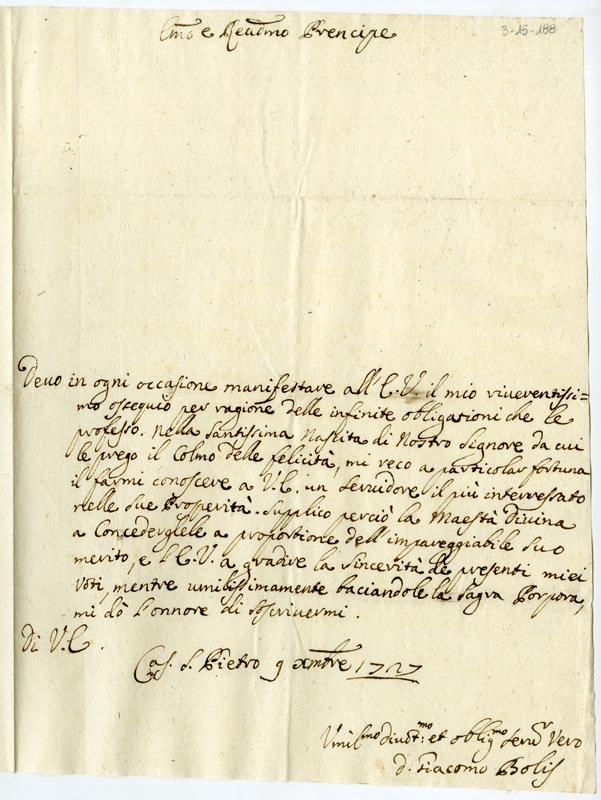 Emo e Reudmo Prencipe
3-15-188
Deuo in ogni occasione manifestare all'E.V. il mio riuerentissi=
mo ossequio per ragione delle infinite obligazioni che le
professo. Nella Santissima Nascita di Nostro Signore da cui
le prego il Colmo delle felicità, mi reco a particolar fortuna
il farmi conoscere a V.E. un Seruidore il più interressato
nelle sue Prosperità. Supplico perciò la Maestà Diuina
a Concederglele a proportione dell'impareggiabile suo
merito, e l'E.V. a gradire la Sincerità de presenti miei
Voti, mentre umilissimamente baciandole la Sagra Porpora,
mi dò l'onnore di Soscriuermi.
Di V.E.
Cas. S. Pietro 9 Xmbre 1727
Vmilmo diuotmo: et obligmo seruor Vero
d. Giacomo Bolis